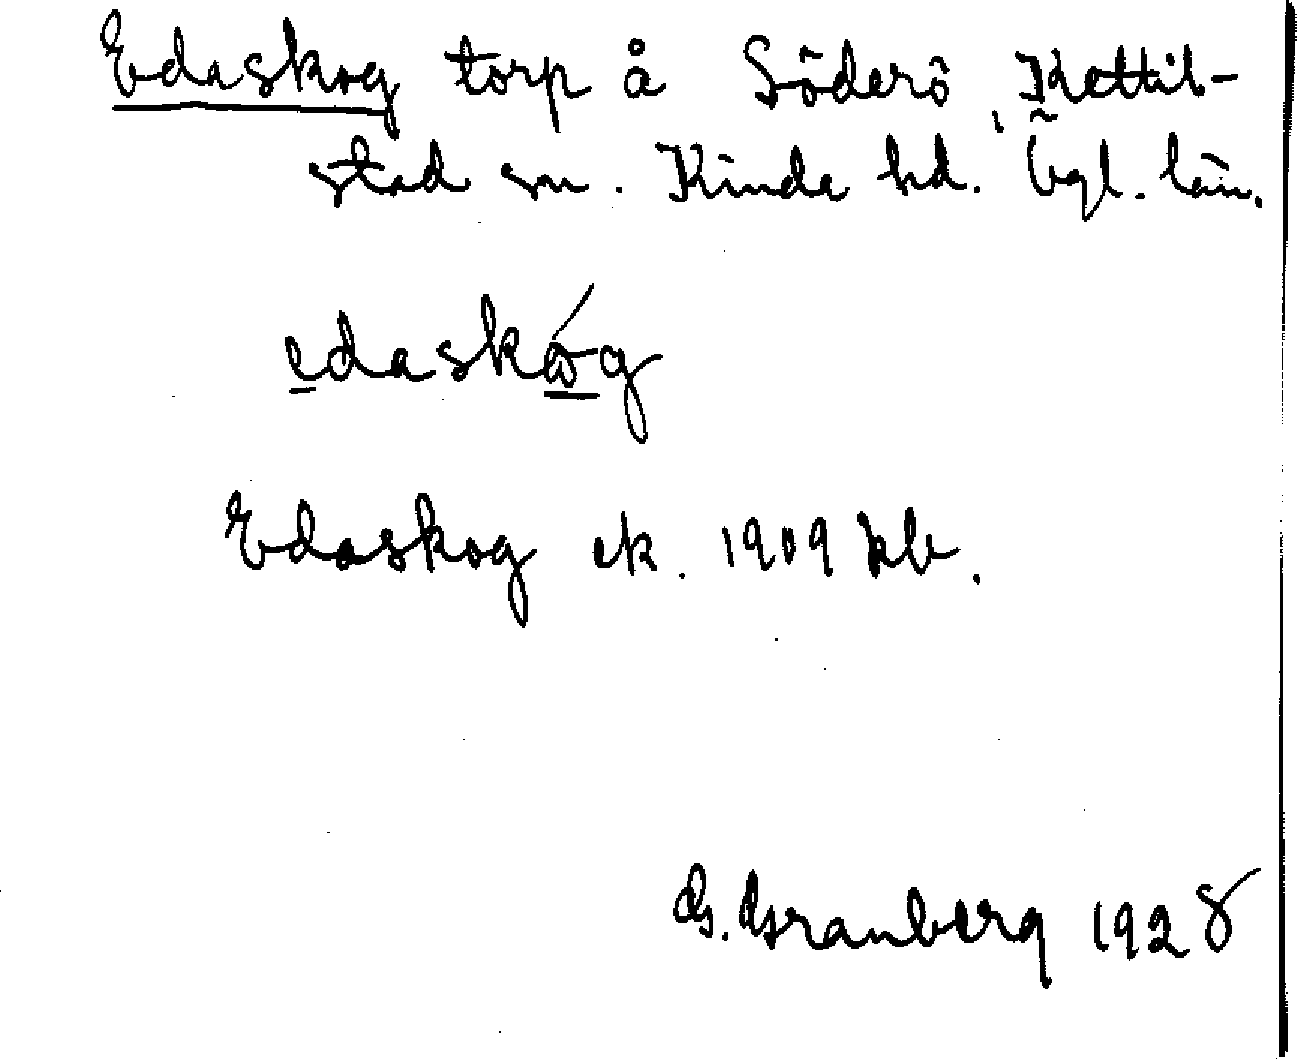 Edaskog torp å Söderö, Kettil-
stad sn. Kinda hd. Ögl. län.
edaskóg
Edaskog ek. 1909 kb.
G. Granberg 1928